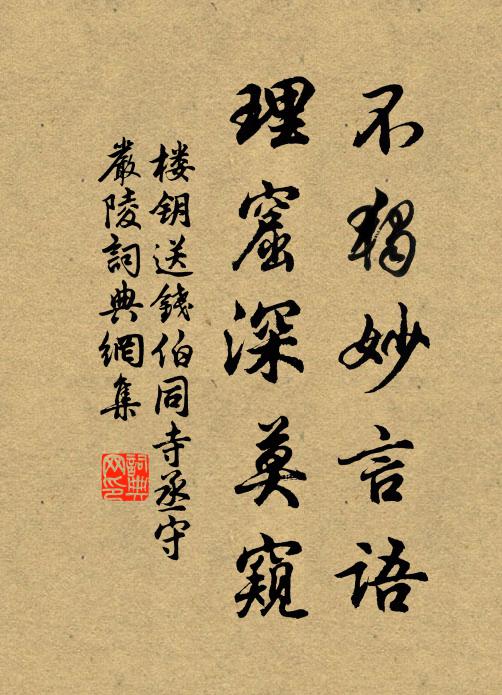 不独妙言语
理窟深莫窺
楼钥送錢伯同寺丞守
嚴陵詞典網集
詞典
网印